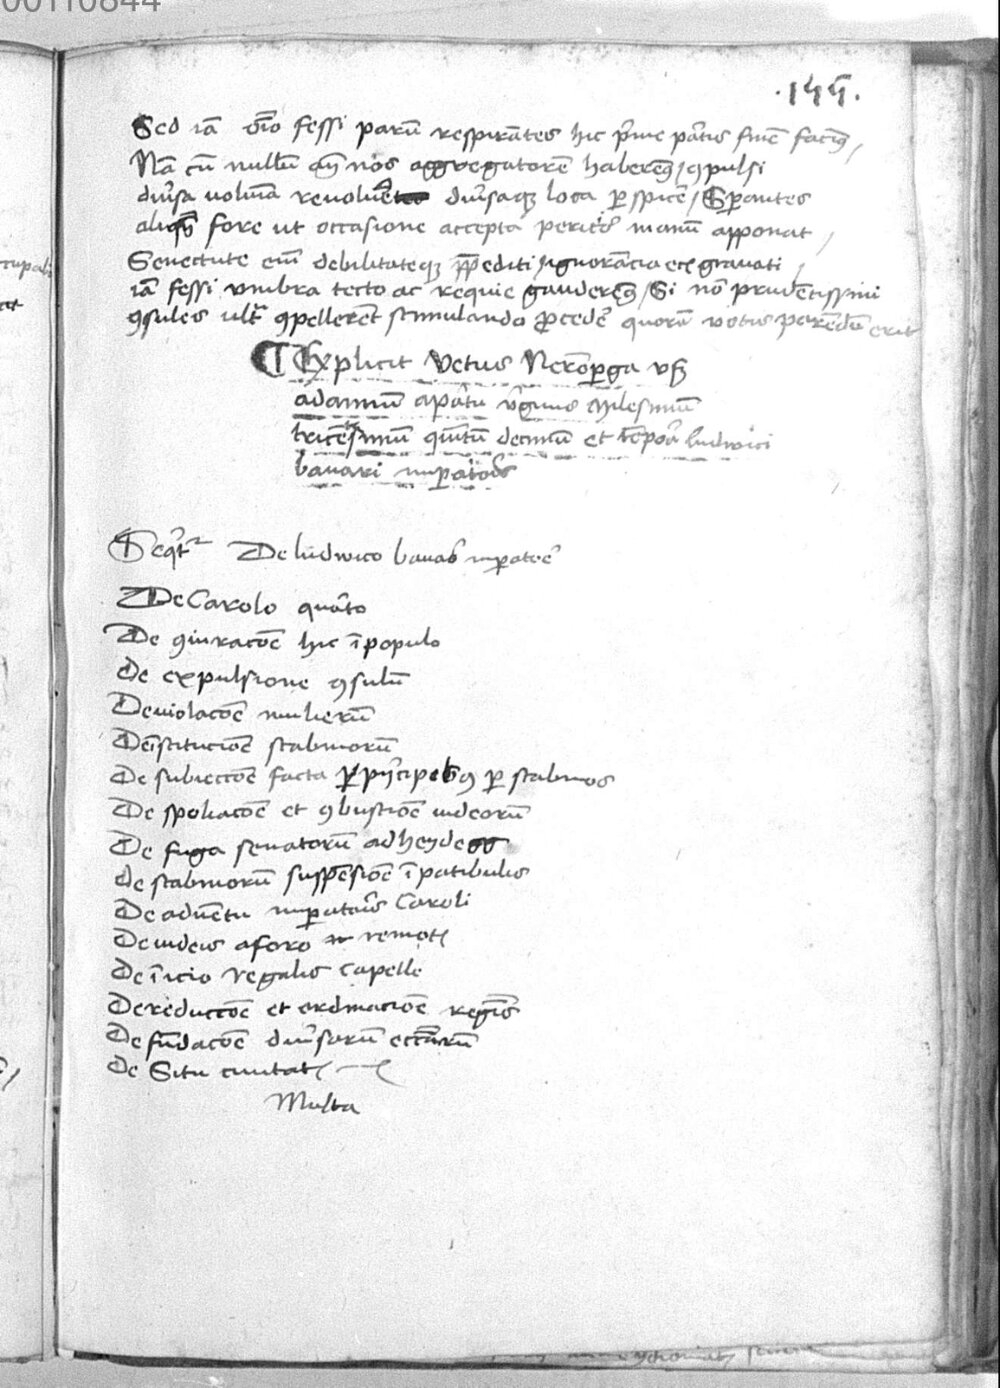 00110844
·145·
Sed iā oīo fessi parū respirātes hic p̄me p̄tis finē facimꝰ /
Nā cū nullū an̄ nos aggregatorē haberemꝰ / ꝯpulsi
diūsa volumīa revoluere diūsaqꝫ loca ꝑspicere / Sꝑantes
aliquē fore ut occasione accepta peritior manū apponat /
Senectute em̄ debilitateqꝫ p̄pediti / ignorācia et gravati /
iā fessi vmbra tecto ac requie gauderemꝰ / Si nō prudētissimi
ꝯsules ult̄ ꝯpellerēt stimulando ꝓcede quorū votis parēdū erit
Explicit Vetus Nerōperga vsqꝫ
ad annū a partu v̄ginis Milesimū
tricētesimū quītū decimū et tēpora ludwici
bavari imꝑatoris
Seqūtur De ludwico bavaro imꝑatore
De Carolo quarto
De ꝯiuracōe hic ī populo
De expulsione ꝯsulū
De violacōe mulierū
De īstitucīoe scabinorū
De subieccōe facta pricipibꝰ ꝑ scabinos
De spoliacōe et ꝯbustiōe iudeorū
De fuga senatorū ad heydeck
De scabinorū suspēsiōe ī patibulis
De advētu imꝑatoris Caroli
De iudeis a foro remotis
De īicio regalis capelle
De reduccōe et ordinaciōe regīs
De fūdacōe diūsarū ecc̄arū
De Situ civitatis
Multa